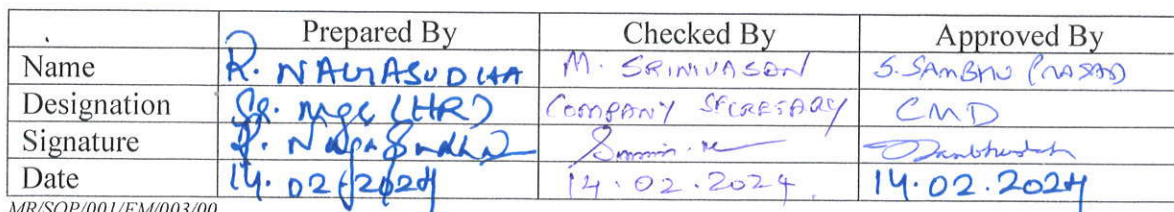 Prepared By Checked By Approved By
Name R. NAGASUDHA M. SRINIVASAN S. SAMBHU PRASAD
Designation Sr. Mgr (HR) COMPANY SECRETARY CMD
Signature R. Naga Sudha
Date 14.02.2024 14.02.2024 14.02.2024
MR/SOP/001/FM/003/00